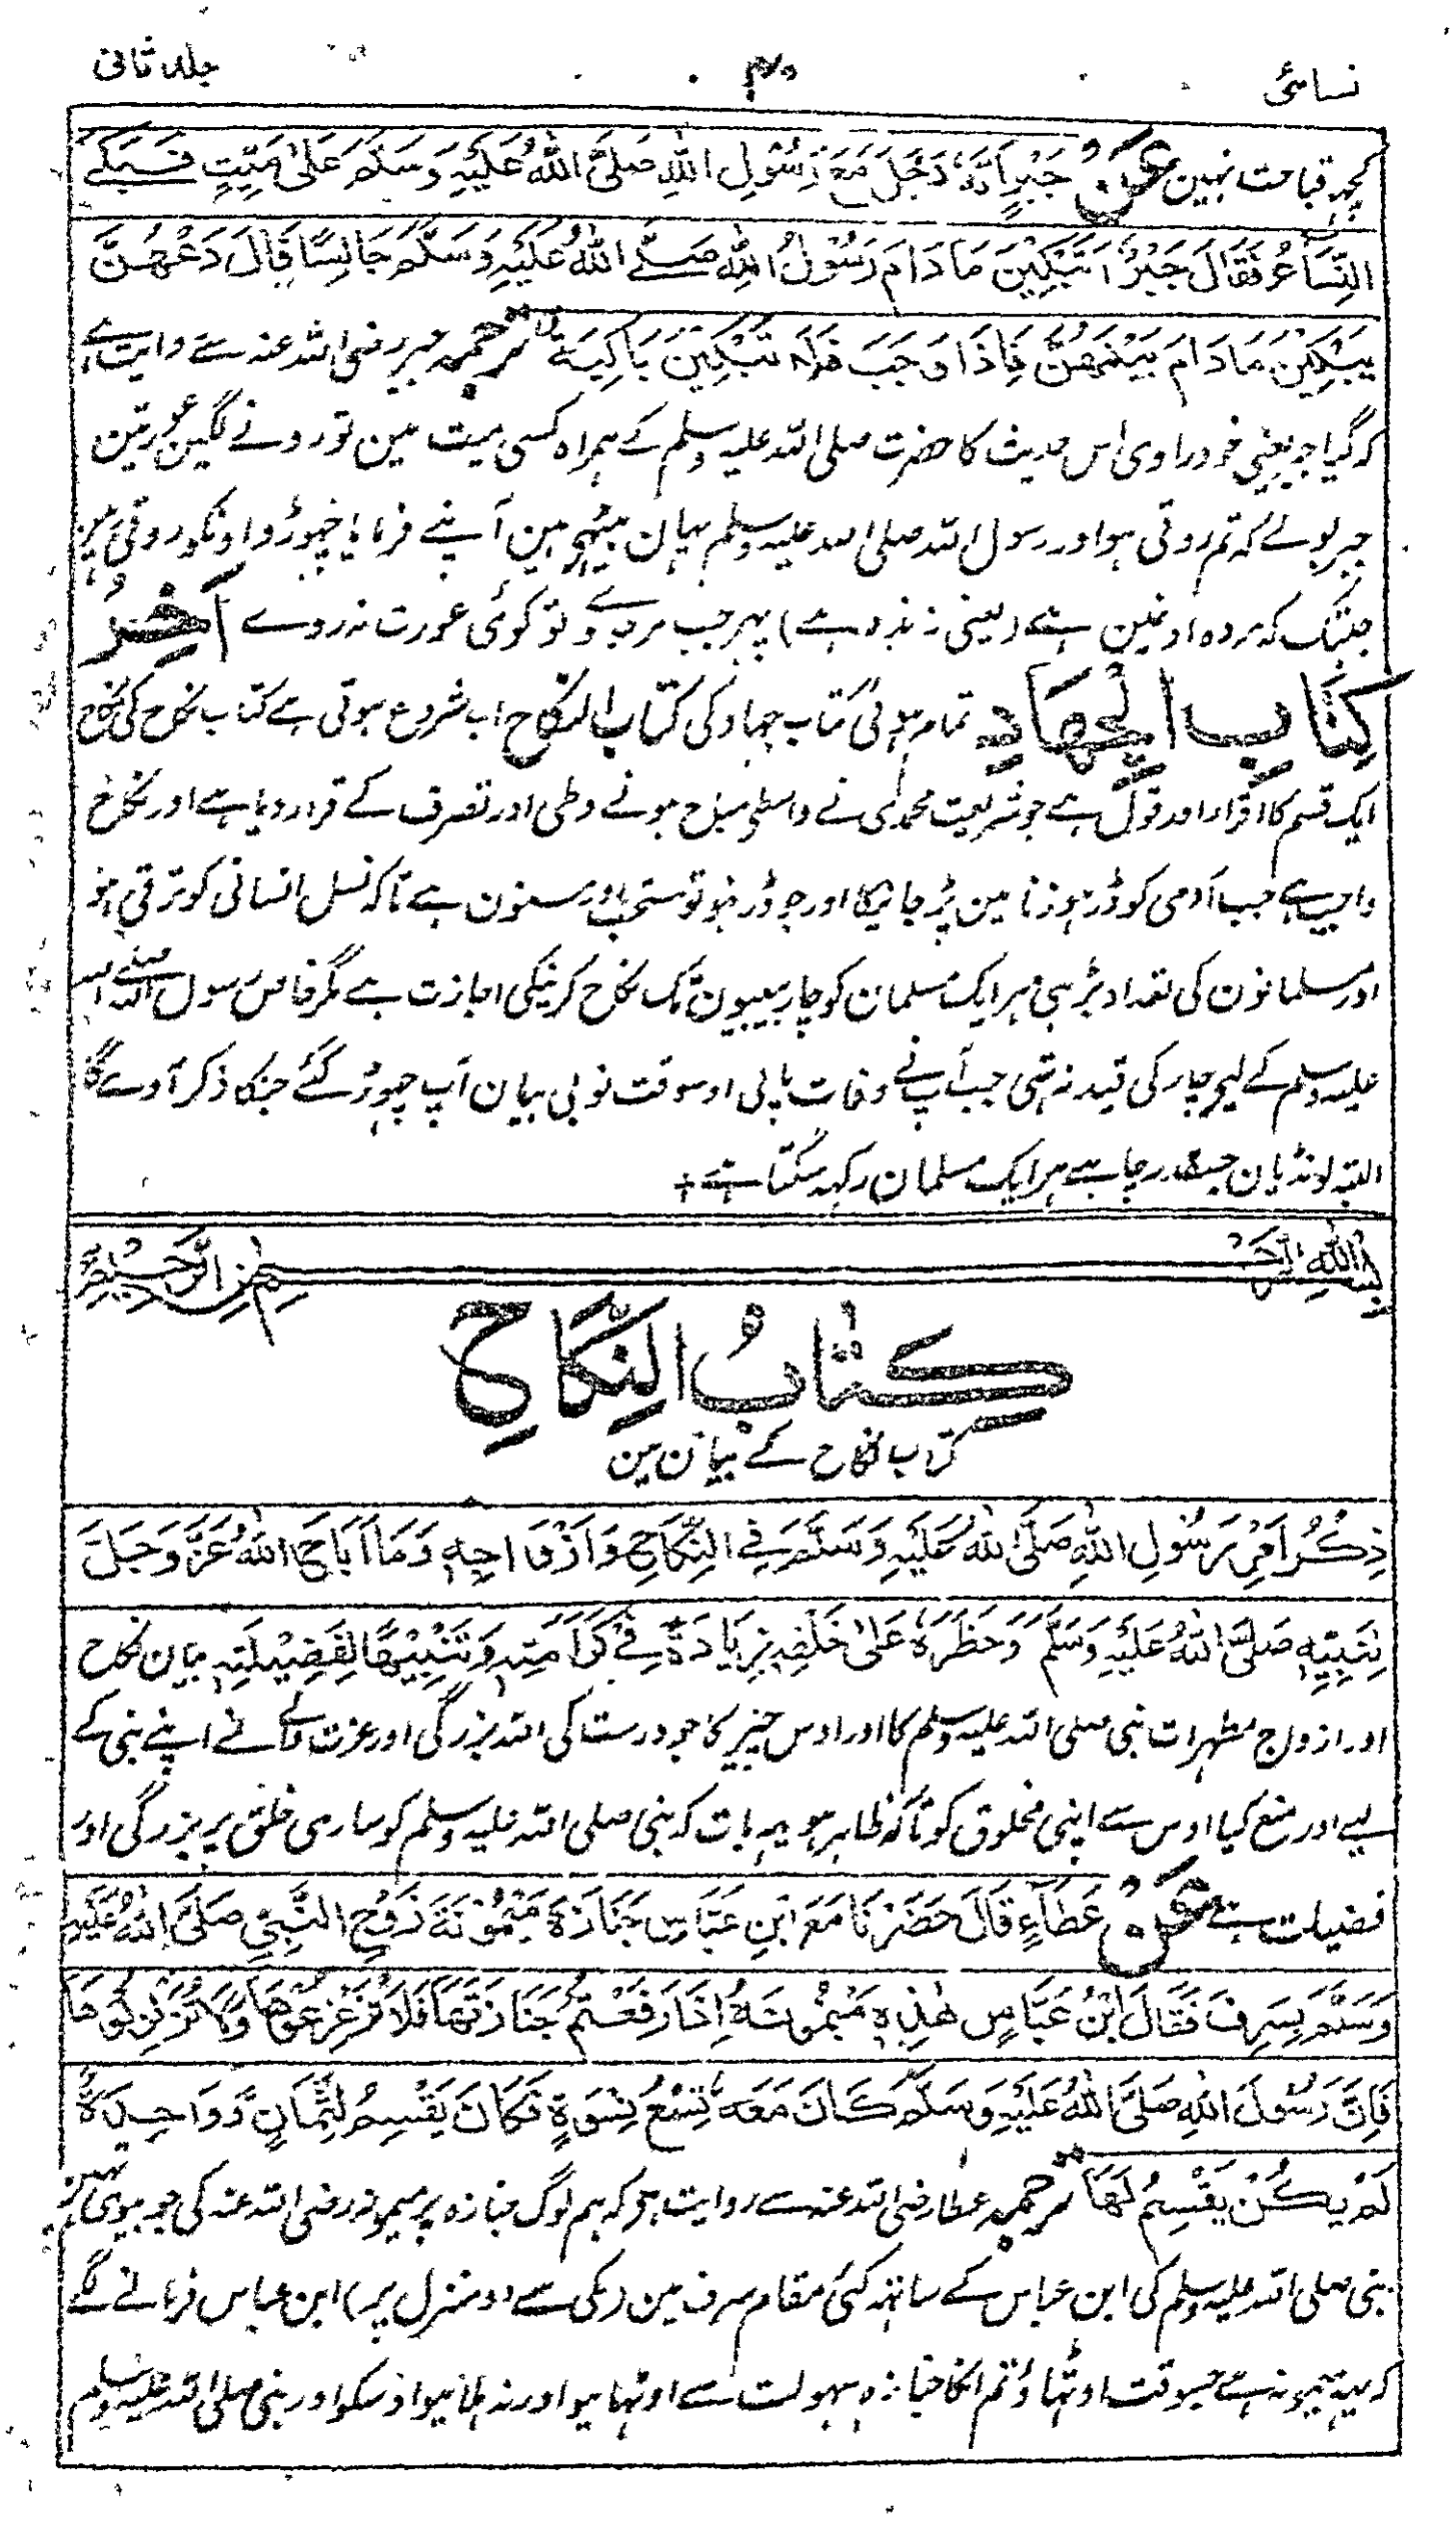 نسائی ۴۰ جلد ثانی
کچھ قباحت نہین عَنْ جَبْرٍ اَنَّهٗ دَخَلَ مَعَ رَسُوْلِ اللهِ صَلَّى اللهُ عَلَيْهِ وَسَلَّمَ عَلىٰ مَيِّتٍ فَبَكَے
النِّسَاءُ فَقَالَ جَبْرٌ اَتَبْكِيْنَ مَا دَامَ رَسُوْلُ اللهِ صَلَّے اللهُ عَلَيْهِ وَسَلَّمَ جَالِسًا قَالَ دَعْهُنَّ
يَبْكِيْنَ مَا دَامَ بَيْنَهُنَّ فَاِذَا وَجَبَ فَلَا تَبْكِيَنَّ بَاكِيَةٌ ترجمہ جبر رضی اللہ عنہ سے روایت ہے
کہ گیا جبر یعنی خود راوی اس حدیث کا حضرت صلی اللہ علیہ وسلم کے ہمراہ کسی میت مین تو رونے لگین عورتین
جبر بولے کہ تم روتی ہو اور رسول اللہ صلی اللہ علیہ وسلم یہان بیٹھے ہین آپنے فرمایا چھوڑ دو اونکو روتی ہین
جبتک کہ مردہ اونمین ہے (یعنی زندہ ہے) پھر جب مر جاوے تو کوئی عورت نہ روے اٰخِرُ
كِتَابِ الْجِهَادِ تمام ہوئی کتاب جہاد کی کتاب النکاح اب شروع ہوتی ہے کتاب نکاح کی نکاح
ایک قسم کا اقرار اور قول ہے جو شریعت محمدی نے واسطے مباح ہونے وطی اور تصرف کے قرار دیا ہے اور نکاح
واجب ہے جب آدمی کو ڈر ہو زنا مین پڑ جانیکا اور جو ڈر نہو تو مستحب اور مسنون ہے تاکہ نسل انسانی کو ترقی ہو
اور مسلمانون کی تعداد بڑہے ہر ایک مسلمان کو چار بیبیون تک نکاح کرنیکی اجازت ہے مگر خاص رسول اللہ صلے اللہ
علیہ وسلم کے لیے چار کی قید نہ تھی جب آپ نے وفات پائی اوسوقت نو بی بیان آپ چھوڑ گئے جنکا ذکر آوے گا
البتہ لونڈیان جسقدر چاہے ہر ایک مسلمان رکھ سکتا ہے +
بِسْمِ اللهِ الرَّحْمٰنِ الرَّحِيْمِ
كِتَابُ النِّكَاحِ
کتاب نکاح کے بیان مین
ذِكْرُ اَمْرِ رَسُوْلِ اللهِ صَلَّى اللهُ عَلَيْهِ وَسَلَّمَ فِي النِّكَاحِ وَاَزْوَاجِهٖ وَمَا اَبَاحَ اللهُ عَزَّ وَجَلَّ
لِنَبِيِّهٖ صَلَّى اللهُ عَلَيْهِ وَسَلَّمَ وَحَظَرَهٗ عَلىٰ خَلْقِهٖ زِيَادَةً فِيْ كَرَامَتِهٖ وَتَنْبِيْهًا لِفَضِيْلَتِهٖ بیان نکاح
اور ازواج مطہرات نبی صلی اللہ علیہ وسلم کا اور اوس چیز کا جو درست کی اللہ بزرگی اور عزت والے نے اپنے نبی کے
لیے اور منع کیا اوس سے اپنی مخلوق کو تاکہ ظاہر ہو یہ بات کہ نبی صلی اللہ علیہ وسلم کو ساری خلق پر بزرگی اور
فضیلت ہے عَنْ عَطَاءٍ قَالَ حَضَرْنَا مَعَ ابْنِ عَبَّاسٍ جَنَازَةَ مَيْمُوْنَةَ زَوْجِ النَّبِيِّ صَلَّى اللهُ عَلَيْهِ
وَسَلَّمَ بِسَرِفَ فَقَالَ ابْنُ عَبَّاسٍ هٰذِهٖ مَيْمُوْنَةُ اِذَا رَفَعْتُمْ جَنَازَتَهَا فَلَا تُزَعْزِعُوْهَا وَلَا تُزَلْزِلُوْهَا
فَاِنَّ رَسُوْلَ اللهِ صَلَّى اللهُ عَلَيْهِ وَسَلَّمَ كَانَ مَعَهٗ تِسْعُ نِسْوَةٍ فَكَانَ يَقْسِمُ لِثَمَانٍ وَوَاحِدَةٌ
لَمْ يَكُنْ يَقْسِمُ لَهَا ترجمہ عطا رضی اللہ عنہ سے روایت ہے کہ ہم لوگ جنازہ پر میمونہ رضی اللہ عنہ کی جو بیوی تھین
نبی صلی اللہ علیہ وسلم کی ابن عباس کے ساتھ گئے مقام سرف مین (مکی سے دو منزل پر) ابن عباس فرمانے لگے
کہ یہ میمونہ ہے جسوقت اوٹھاؤ تم انکا جنازہ سہولت سے اوٹھائیو اور نہ ہلائیو اوسکو اور نبی صلی اللہ علیہ وسلم